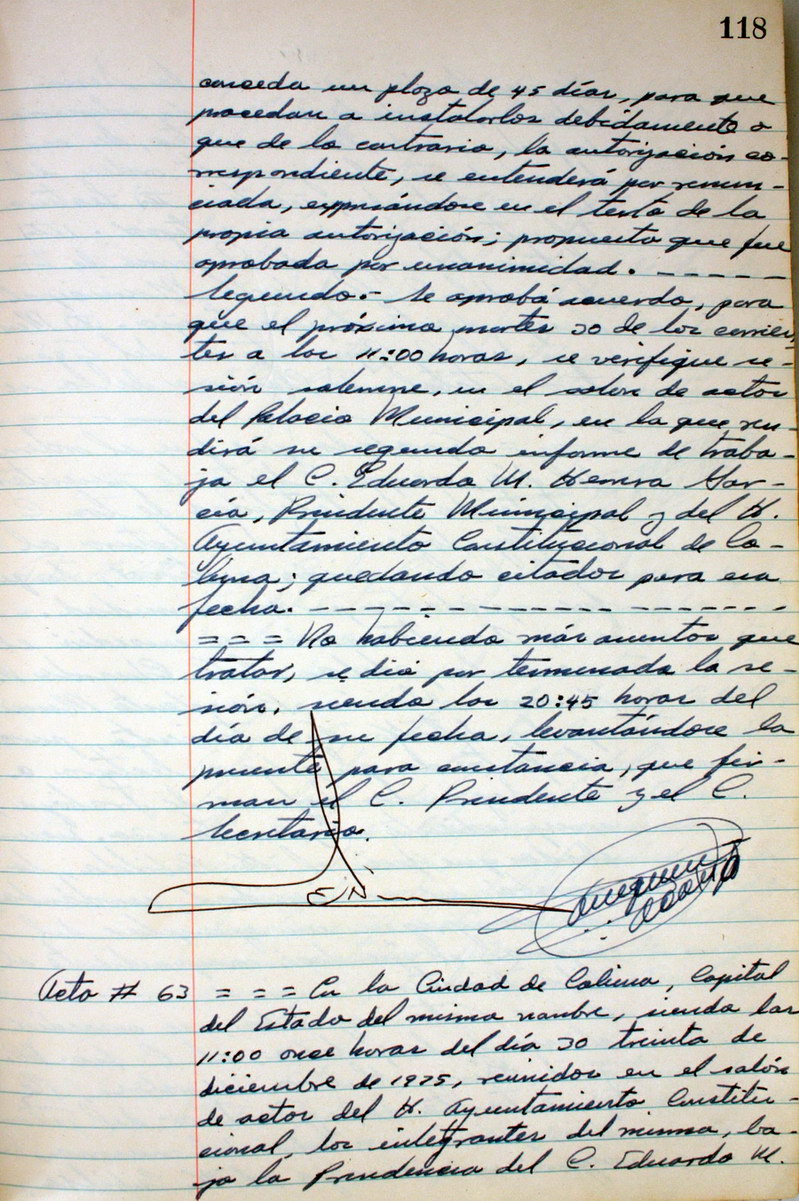 118
conceda un plazo de 45 días, para que
procedan a instalarlos debidamente o
que de lo contrario, la autorización co-
rrespondiente, se entenderá por renun-
ciada, expresándose en el texto de la
propia autorización; propuesta que fue
aprobada por unanimidad. - - - - - -
Segundo.- Se aprobó acuerdo, para
que el próximo martes 30 de los corrien-
tes a las 11:00 horas, se verifique se-
sión solemne, en el salón de actos
del Palacio Municipal, en la que ren-
dirá su segundo informe de traba-
jo el C. Eduardo M. Herrera Gar-
cía, Presidente Municipal y del H.
Ayuntamiento Constitucional de Co-
lima; quedando citados para esa
fecha. - - - - - - - - - - - - - - - -
= = = No habiendo más asuntos que
tratar, se dió por terminada la se-
sión, siendo las 20:45 horas del
día de su fecha, levantándose la
presente para constancia, que fir-
man el C. Presidente y el C.
Secretario.
Acta # 63 = = = En la Ciudad de Colima, Capital
del Estado del mismo nombre, siendo las
11:00 once horas del día 30 treinta de
diciembre de 1975, reunidos en el salón
de actos del H. Ayuntamiento Constitu-
cional, los integrantes del mismo, ba-
jo la Presidencia del C. Eduardo M.